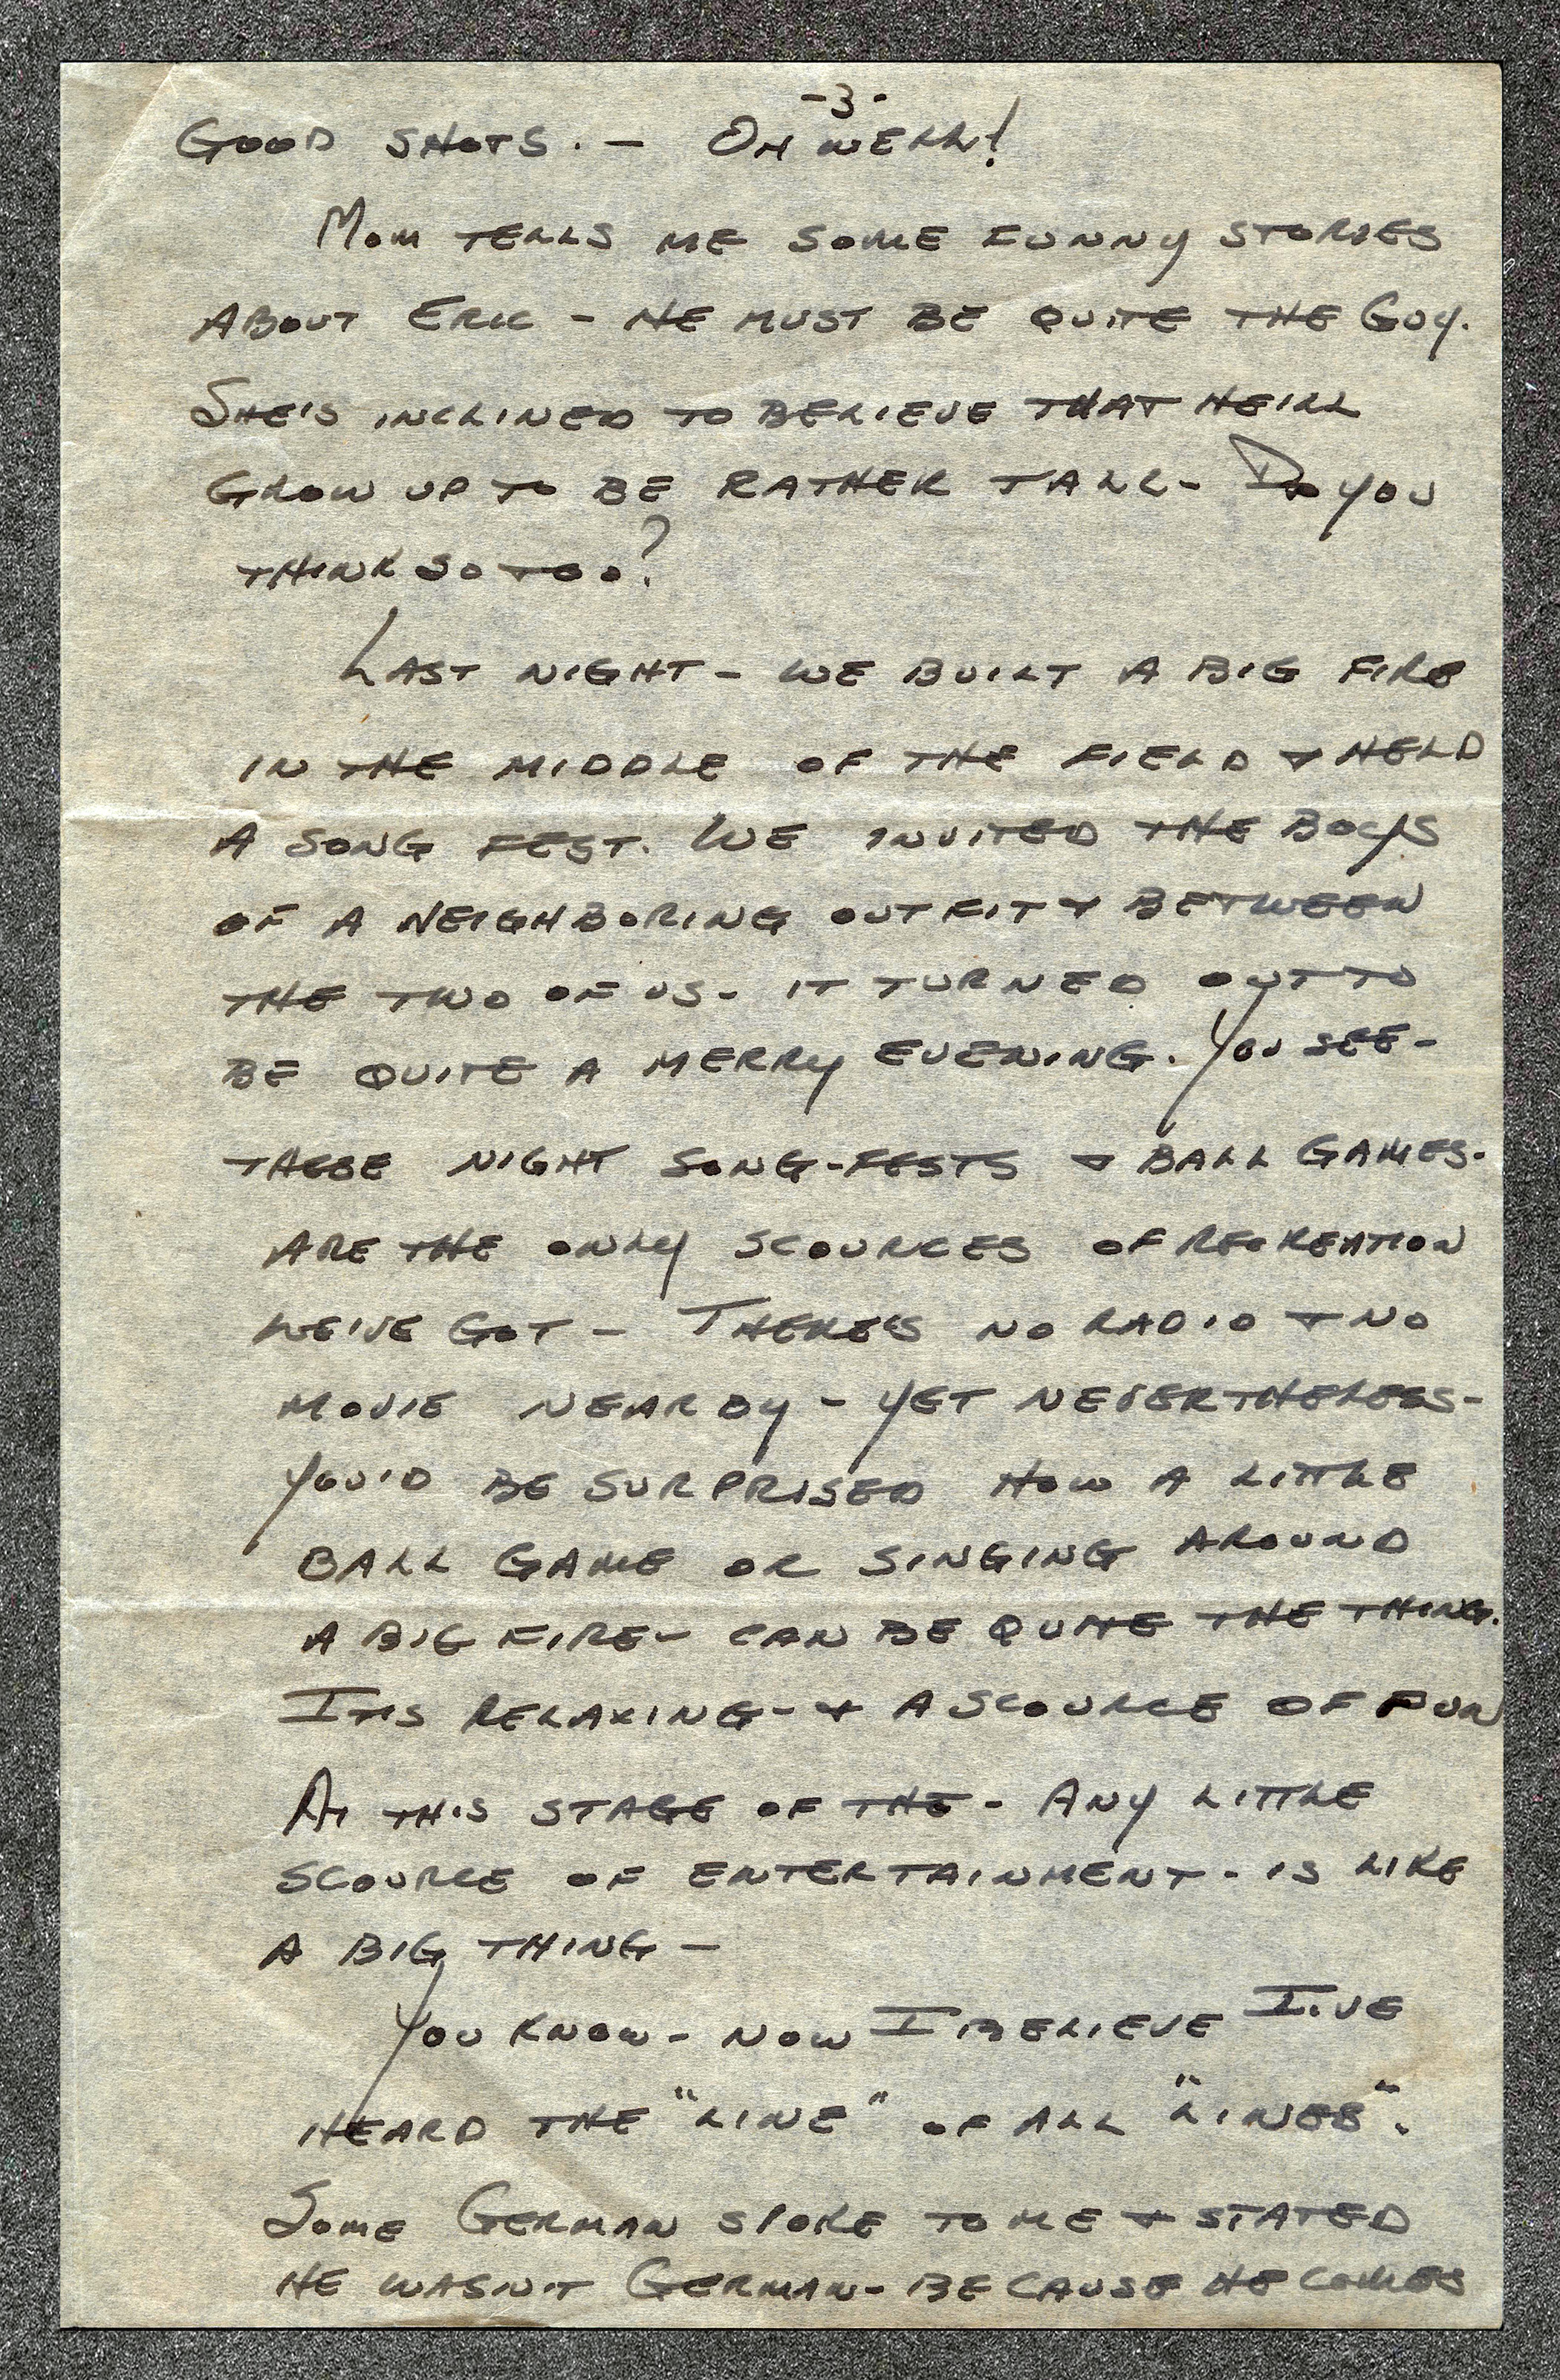 -3-
GOOD SHOTS. — OH WELL!
MOM TELLS ME SOME FUNNY STORIES
ABOUT ERIC - HE MUST BE QUITE THE GUY.
SHE'S INCLINED TO BELIEVE THAT HE'LL
GROW UP TO BE RATHER TALL - DO YOU
THINK SO TOO?
LAST NIGHT - WE BUILT A BIG FIRE
IN THE MIDDLE OF THE FIELD & HELD
A SONG FEST. WE INVITED THE BOYS
OF A NEIGHBORING OUTFIT & BETWEEN
THE TWO OF US - IT TURNED OUT TO
BE QUITE A MERRY EVENING. YOU SEE -
THESE NIGHT SONG-FESTS & BALL GAMES -
ARE THE ONLY SCOURCES OF RECREATION
WE'VE GOT - THERE'S NO RADIO & NO
MOVIE NEAR BY - YET NEVERTHELESS -
YOU'D BE SURPRISED HOW A LITTLE
BALL GAME OR SINGING AROUND
A BIG FIRE - CAN BE QUITE THE THING.
IT'S RELAXING - & A SCOURCE OF FUN
AT THIS STAGE OF THE - ANY LITTLE
SCOURCE OF ENTERTAINMENT - IS LIKE
A BIG THING —
YOU KNOW - NOW I BELIEVE I'VE
HEARD THE "LINE" OF ALL "LINES".
SOME GERMAN SPOKE TO ME & STATED
HE WASN'T GERMAN - BECAUSE HE COMES